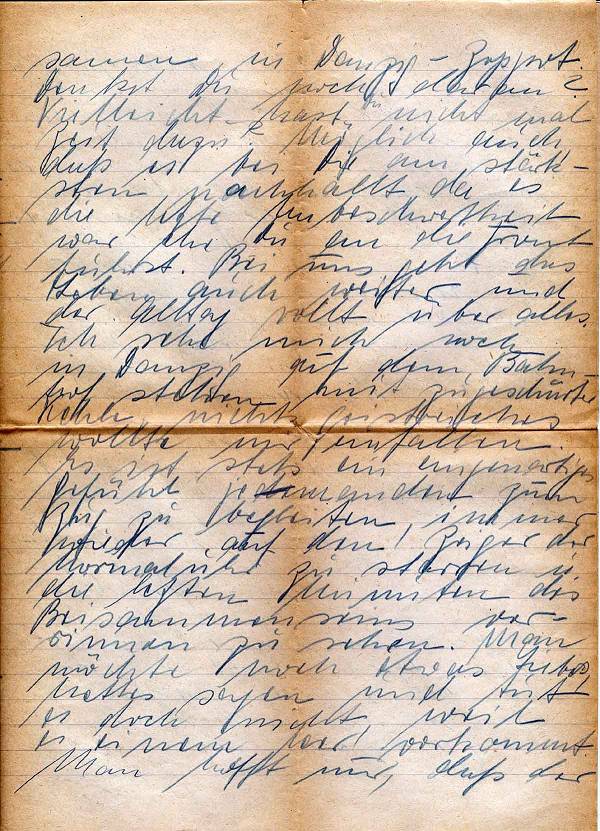 samen in Danzig-Zoppot.
Denkst Du noch daran?
Vielleicht hast Du nicht mal
Zeit dazu? Möglich auch,
daß es bei Dir am stärk-
sten nachhallt da es
die letzte Unbeschwertheit
war ehe Du an die Front
fuhrst. Bei uns geht das
Leben auch weiter und
der Alltag rollt über alles.
Ich sehe mich noch
in Danzig auf dem Bahn-
hof stehen mit zugeschnürter
Kehle, nichts geistreiches
wollte mir einfallen.
Es ist stets ein eigenartiges
Gefühl jemanden zum
Zug zu begleiten, immer
wieder auf den Zeiger der
Normaluhr zu starren u.
die letzten Minuten des
Beisammenseins ver-
rinnen zu sehen. Man
möchte noch etwas
sagen und tut
es doch nicht weil
es einem leer vorkommt.
Man hofft nur, daß der